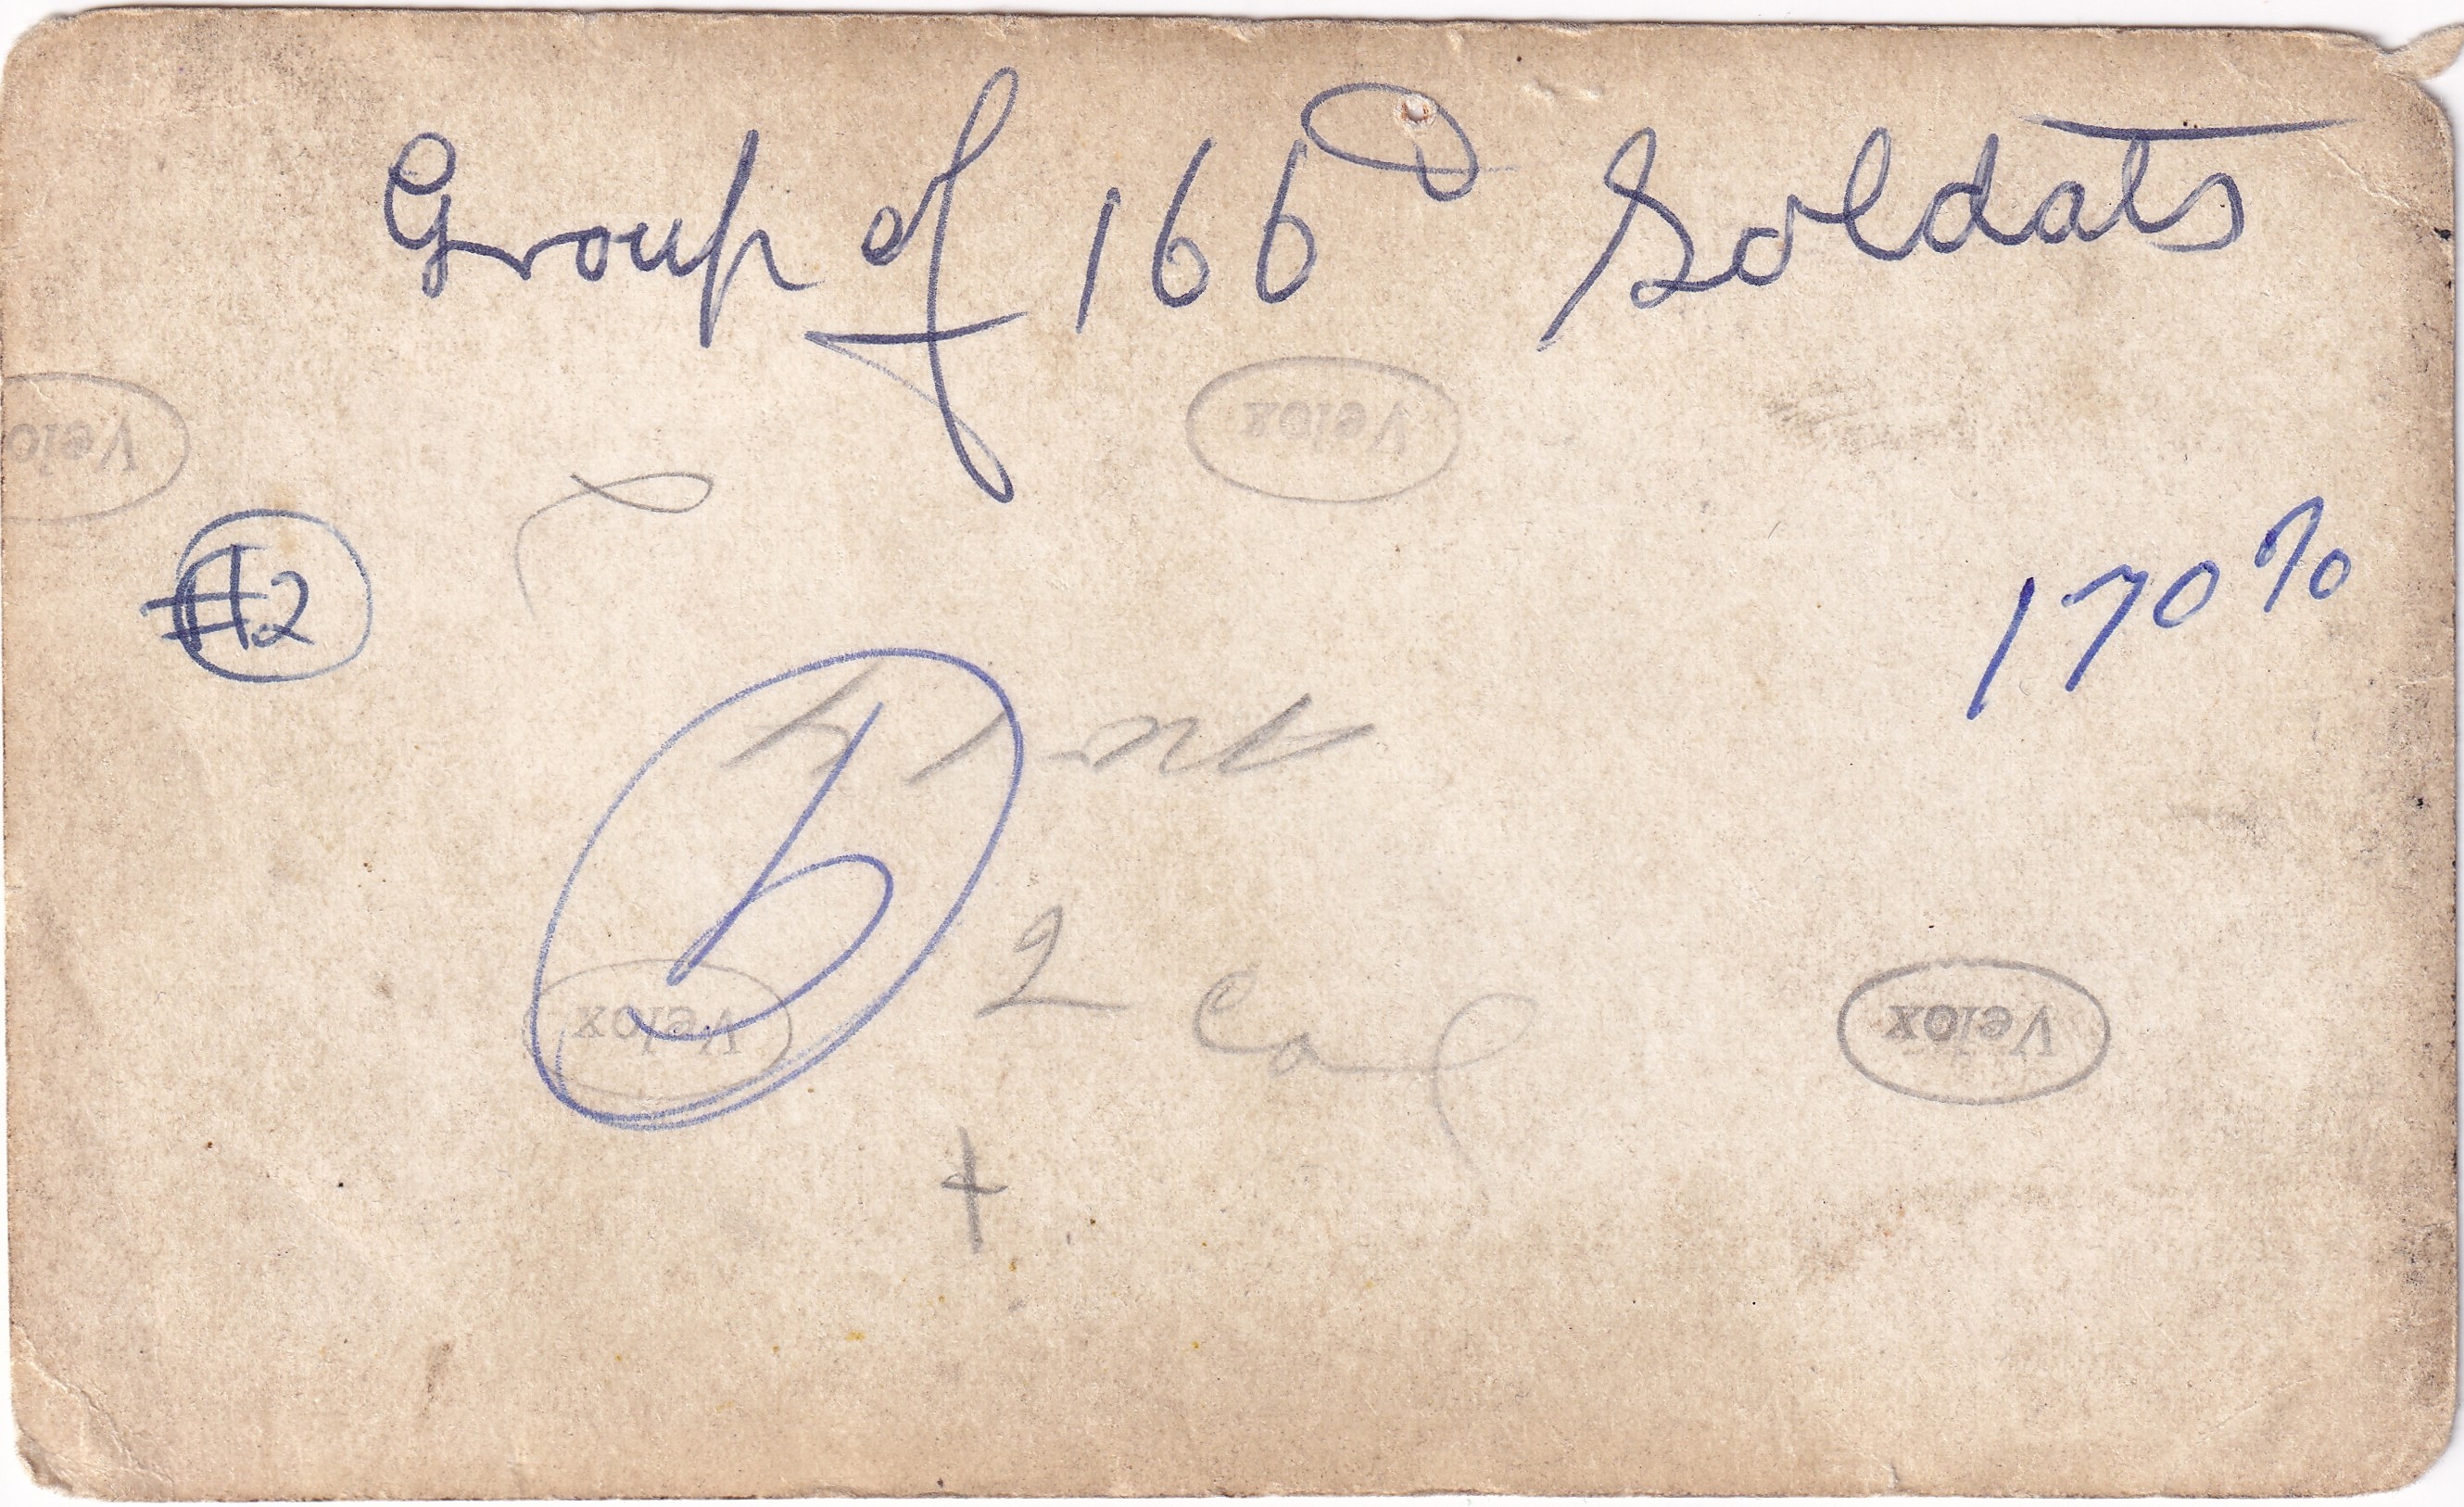 Group of 166th Soldats
Velox
Velox
#2
170%
2 col
Velox
Velox
+